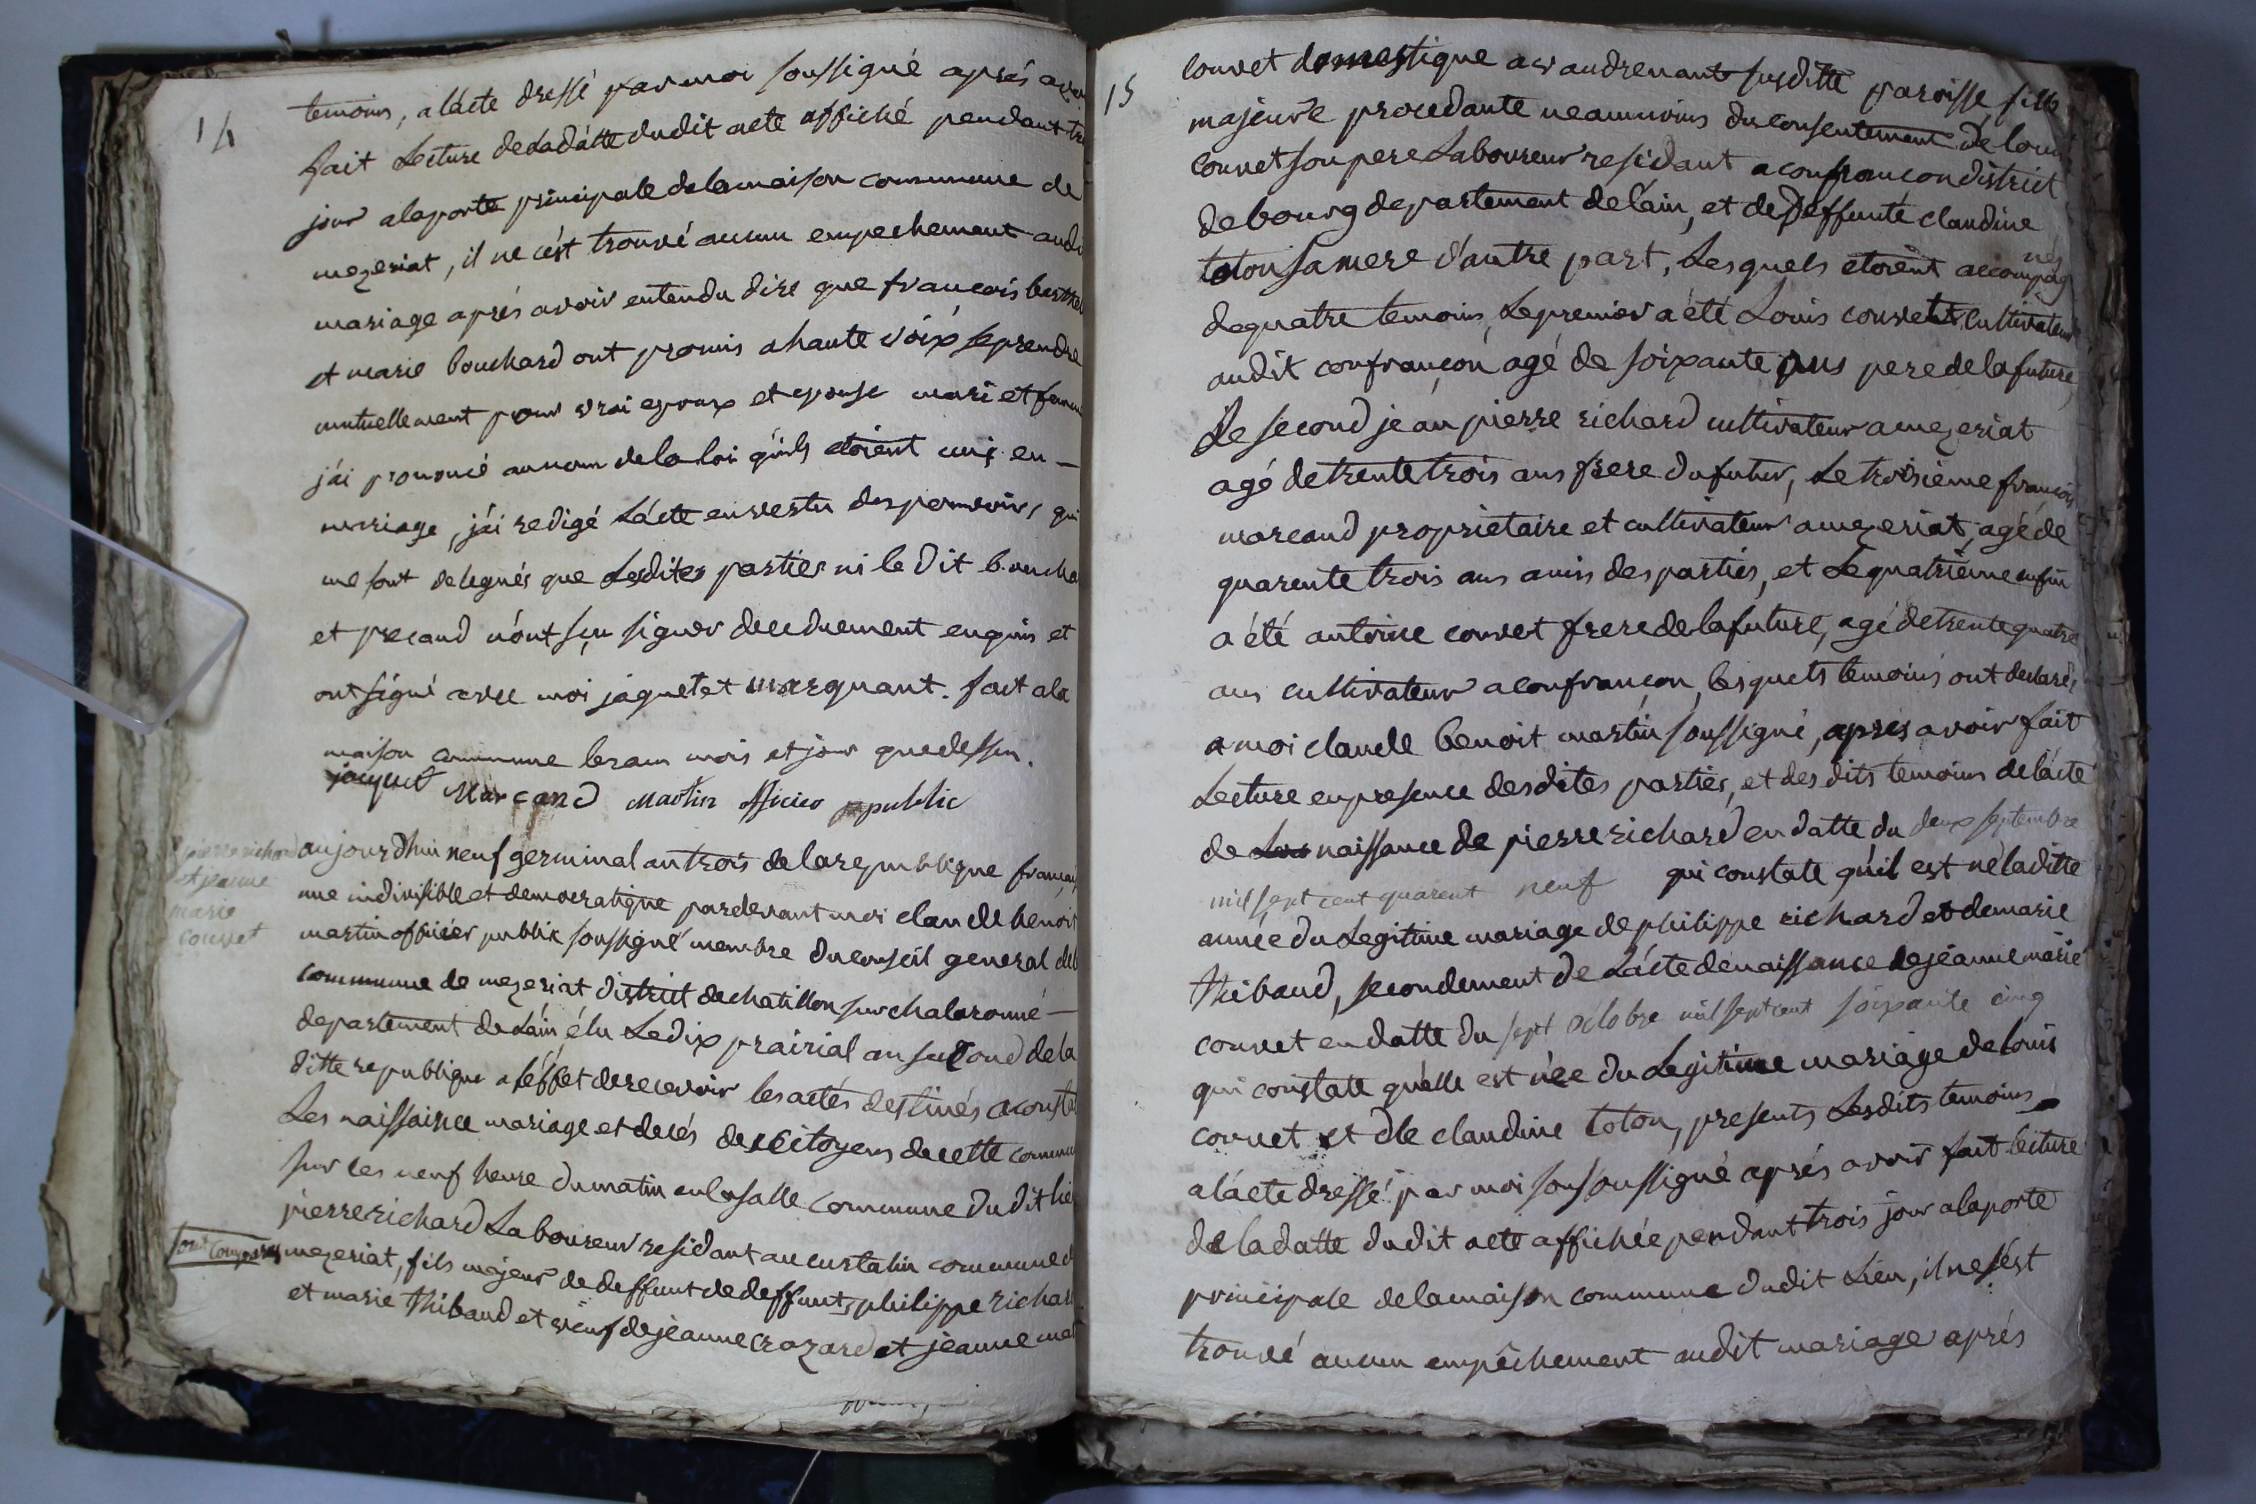 14
temoins, a lácte dressé par moi soussigné aprés
fait Lecture de Ladátte dudit acte affiché pendant
jour alaporte principale de la maison commune de
mezeriat, il ne cést trouvé aucun empechement
mariage aprés avoir entendu dire que françois
et marie bouchard ont promis a haute voix se prendre
mutuellement pour vrai epoux et epouse mari et
jái prononcé au nom de la loi qúils etoient unis en —
mariage, jái redigé Lácte en vertu des pouvoirs, qui
me sont delegués que Lesdites parties ni le dit
et pecand nónt sçu signer de ce duement enquis et
ont signé avec moi jaquet et marquant. fait ala
maison commune les an mois et jour que dessu.
jaquet Marcand Martin officier public
pierre richard
et jeanne
marie
couvet
aujourdhui neuf germinal an trois de la republique
une indivisible et democratique pardevant moi claude benoit
martin officier public soussigné membre du conseil general
commune de mezeriat district de chatillon sur chalaronne —
departement de Láin élu Le dix prairial an second de la
ditte republique a léffet de recevoir les actés destinés a
Les naissaince mariage et decés des citoyens de cette
sur les neuf heure du matin en la salle commune du dit
pierre richard Laboureur residant au custalin commune
mezeriat, fils majeur de deffunt de deffunts philippe
et marie thibaud et veuf de jeanne crozard et jeanne
15
couvet domestique a vandrenant susditte paroisse fille
majeure procedante neanmoins du consentement de
couvet son pere Laboureur residant a confrancon district
de bourg departement de láin, et de deffunte claudine
toton sa mere dáutre part, Lesquels etoient accompag
nés
de quatre temoins, Le premier a été Louis couvet cultivateur
audit confrançon agé de soixante ans pere de la future,
Le second jean pierre richard cultivateur a mezeriat
agé de trente trois ans frere du futur, Le troisieme françois
marcand proprietaire et cultivateur a mezeriat, agé de
quarente trois ans amis des parties, et Le quatrieme enfin
a été antoine couvet frere de la future, agé de trente quatre
ans cultivateur a confrancon, lesquels temoins ont declaré,
a moi claude benoit martin soussigné, aprés avoir fait
Lecture en presence desdites parties, et des dits temoins de lácte
de naissance de pierre richard en datte du deux septembre
mil sept cent quarent neuf qui constate qúil est né laditte
année du Legitime mariage de philippe richard et de marie
thibaud, secondement de Lácte de naissance de jeanne marie
couvet en datte du sept octobre mil sept cent soixante cinq
qui constate qúelle est née du Legitime mariage de Louis
couvet et de claudine toton, presents Lesdits temoins
a lácte dressé par moi sousoussigné aprés avoir fait lecture
de la datte dudit acte affichée pendant trois jour alaporte
principale de la maison commune dudit Lieu, il ne sést
trouvé aucun empêchement audit mariage aprés